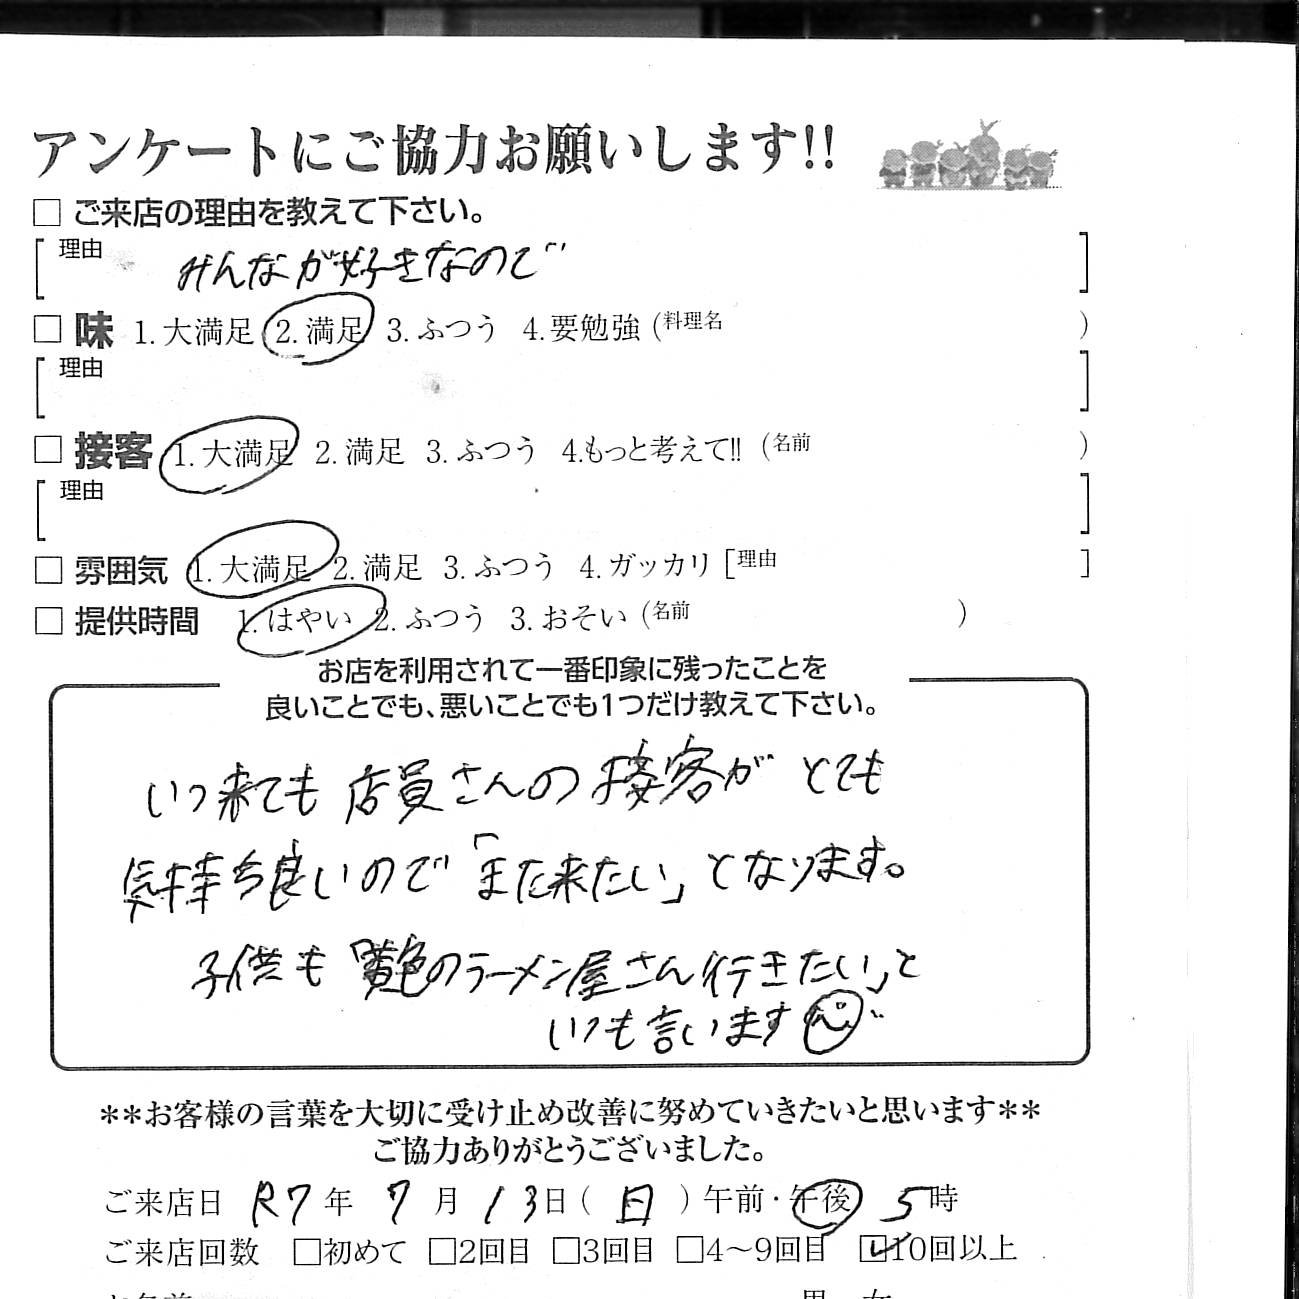 アンケートにご協力お願いします!!
□ ご来店の理由を教えて下さい。
[理由 みんなが好きなので ]
□ 味 1.大満足 2.満足 3.ふつう 4.要勉強 (料理名 )
[理由 ]
□ 接客 1.大満足 2.満足 3.ふつう 4.もっと考えて!! (名前 )
[理由 ]
□ 雰囲気 1.大満足 2.満足 3.ふつう 4.ガッカリ [理由 ]
□ 提供時間 1.はやい 2.ふつう 3.おそい (名前 )
お店を利用されて一番印象に残ったことを
良いことでも、悪いことでも1つだけ教えて下さい。
いつ来ても 店員さんの 接客が とても
気持ち良いので「また来たい」となります。
子供も「黄色のラーメン屋さん行きたい」と
いつも言います
**お客様の言葉を大切に受け止め改善に努めていきたいと思います**
ご協力ありがとうございました。
ご来店日 R7年 7月 13日(日)午前・午後 5時
ご来店回数 □初めて □2回目 □3回目 □4〜9回目 ☑10回以上